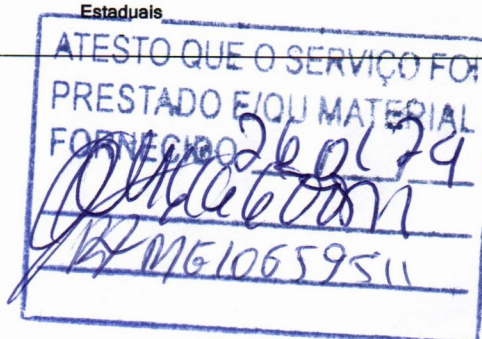 Estaduais
ATESTO QUE O SERVIÇO FOI
PRESTADO E/OU MATERIAL
FORNECIDO 26/01/24
MG10659511